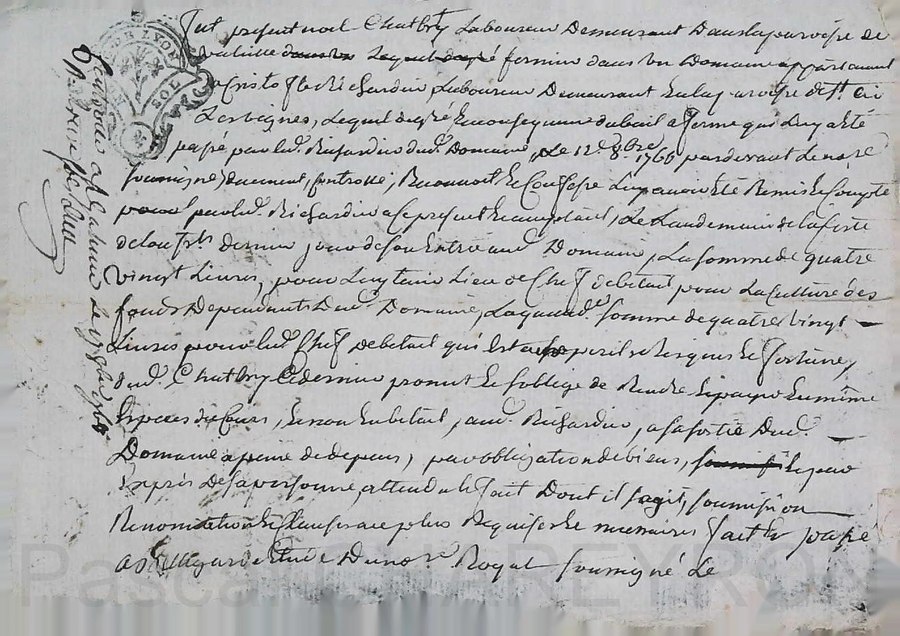 fut present noel Chatbry Laboureur Demeurant Dans la paroisse de
fermier dans un Domaine appartenant
a Cristofle Richardier, Laboureur Demeurant en la paroisse de St
Lequel de gré en consequence du bail a ferme qui luy a été
passé par led. Richardier dud. Domaine, Le 12e 8bre 1766 pardevant Le no.re
soussigné duement controllé, Reconnoit et Confesse Luy avoir été Remis et Compté
par led. Richardier a ce present et acceptant, Le Landemain de la feste
de dernier jour de son Entrée aud. Domaine, La somme de quatre
vingt Livres, pour Luy tenir Lieu de Chef de betail pour La Culture des
fonds Dependants Dud. Domaine, Laquelle somme de quatre vingt
Livres pour led. Chef de betail qui est peril Risques et fortune,
dud. Chatbry Ce dernier promet et s'oblige de Rendre et payer En même
Especes de Cours, et non En betail, aud. Richardier, a sa sortie Dud.
Domaine a peine de depens, par obligation de biens, et par
Exprès de sa personne, attendu le fait Dont il s'agit, soumission
Renonciation et Clauses a ce plus Requises et necessaires fait et passé
a Etude Du no.re Royal soussigné Le
DE LYON
SOL
Pascal CHAREYRON